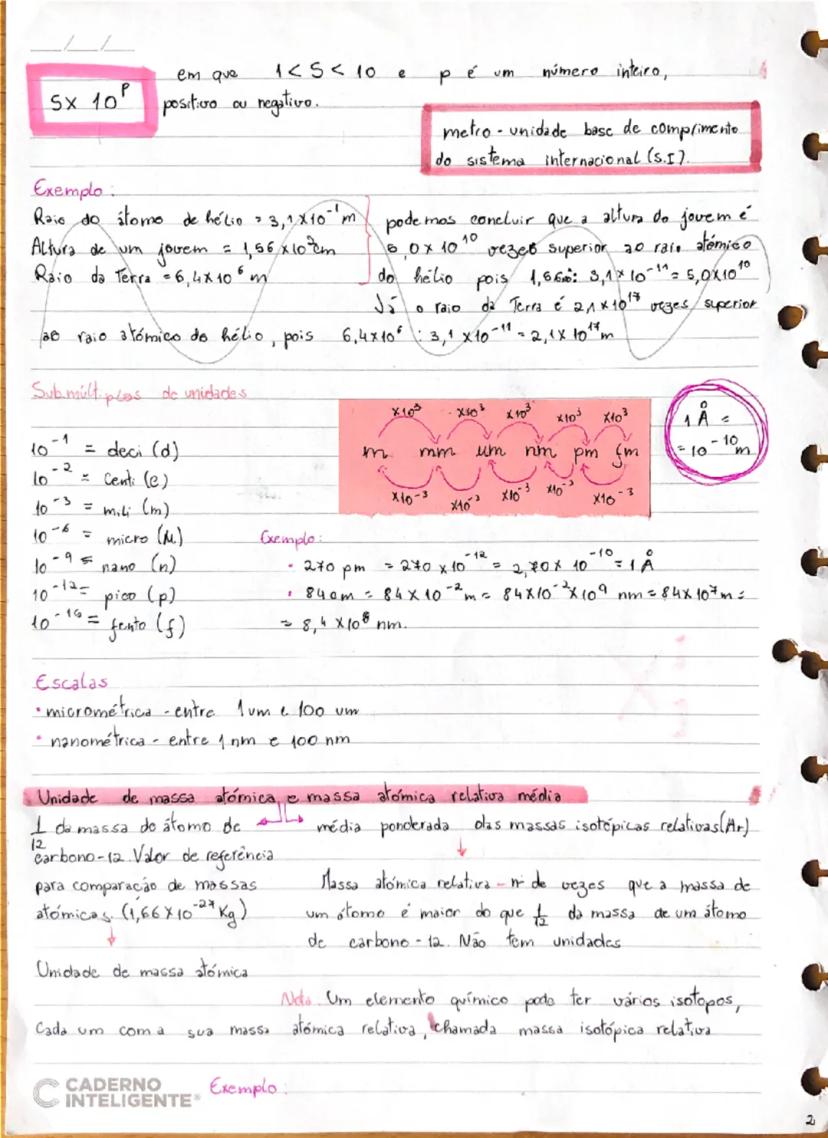 em que 1 < S < 10 e p é um número inteiro,
S x 10^p positivo ou negativo.
metro - unidade base de comprimento
do sistema internacional (S.I).
Exemplo:
Raio do átomo de hélio = 3,1 x 10^-1 m
Altura de um jovem = 1,56 x 10^2 cm
Raio da Terra = 6,4 x 10^6 m
podemos concluir que a altura do jovem é
5,0 x 10^10 vezes superior ao raio atómico
do hélio pois 1,56 : 3,1 x 10^-11 = 5,0 x 10^10
Já o raio da Terra é 2,1 x 10^17 vezes superior
ao raio atómico do hélio, pois 6,4 x 10^6 : 3,1 x 10^-11 = 2,1 x 10^17 m
Submúltiplos de unidades
x10^3 x10^3 x10^3 x10^3 x10^3
m mm um nm pm fm
x10^-3 x10^-3 x10^-3 x10^-3 x10^-3
1 Å =
= 10^-10 m
10^-1 = deci (d)
10^-2 = centi (c)
10^-3 = mili (m)
10^-6 = micro (M)
10^-9 = nano (n)
10^-12 = pico (p)
10^-15 = fento (f)
Exemplo:
• 270 pm = 270 x 10^-12 = 2,70 x 10^-10 = 1 Å
• 84 cm = 84 x 10^-2 m = 84 x 10^-2 x 10^9 nm = 84 x 10^7 m =
= 8,4 x 10^8 nm.
Escalas
• micrométrica - entre 1 um e 100 um
• nanométrica - entre 1 nm e 100 nm
Unidade de massa atómica e massa atómica relativa média
1/12 da massa do átomo de
carbono-12. Valor de referência
para comparação de massas
atómicas. (1,66 x 10^-27 Kg)
Unidade de massa atómica
média ponderada das massas isotópicas relativas (Ar)
Massa atómica relativa - nº de vezes que a massa de
um átomo é maior do que 1/12 da massa de um átomo
de carbono - 12. Não tem unidades
Nota: Um elemento químico pode ter vários isotopos,
Cada um com a sua massa atómica relativa, chamada massa isotópica relativa
Exemplo:
CADERNO
INTELIGENTE®
2